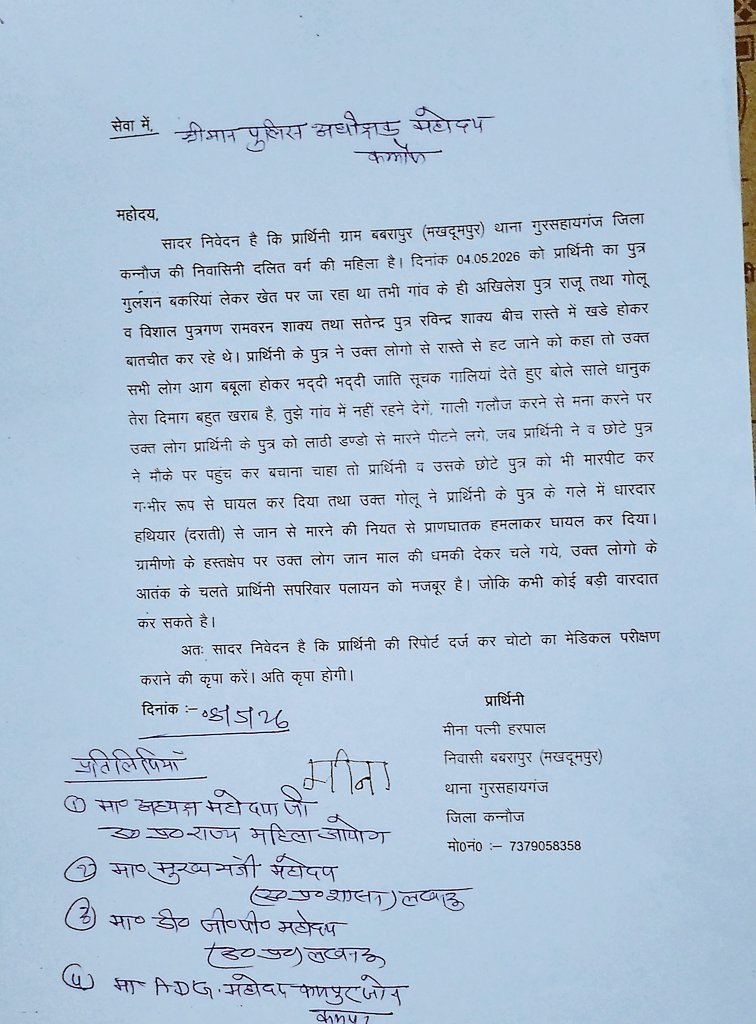 सेवा में,
श्रीमान पुलिस अधीक्षक महोदय
कन्नौज
महोदय,
सादर निवेदन है कि प्रार्थिनी ग्राम बबरापुर (मखदूमपुर) थाना गुरसहायगंज जिला
कन्नौज की निवासिनी दलित वर्ग की महिला है। दिनांक 04.05.2026 को प्रार्थिनी का पुत्र
गुर्लशन बकरियां लेकर खेत पर जा रहा था तभी गांव के ही अखिलेश पुत्र राजू तथा गोलू
व विशाल पुत्रगण रामवरन शाक्य तथा सतेन्द्र पुत्र रविन्द्र शाक्य बीच रास्ते में खडे होकर
बातचीत कर रहे थे। प्रार्थिनी के पुत्र ने उक्त लोगो से रास्ते से हट जाने को कहा तो उक्त
सभी लोग आग बबूला होकर भद्दी भद्दी जाति सूचक गालियां देते हुए बोले साले धानुक
तेरा दिमाग बहुत खराब है, तुझे गांव में नहीं रहने देगें, गाली गलौज करने से मना करने पर
उक्त लोग प्रार्थिनी के पुत्र को लाठी डण्डो से मारने पीटने लगे, जब प्रार्थिनी ने व छोटे पुत्र
ने मौके पर पहुंच कर बचाना चाहा तो प्रार्थिनी व उसके छोटे पुत्र को भी मारपीट कर
गम्भीर रूप से घायल कर दिया तथा उक्त गोलू ने प्रार्थिनी के पुत्र के गले में धारदार
हथियार (दराती) से जान से मारने की नियत से प्राणघातक हमलाकर घायल कर दिया।
ग्रामीणो के हस्तक्षेप पर उक्त लोग जान माल की धमकी देकर चले गये, उक्त लोगो के
आतंक के चलते प्रार्थिनी सपरिवार पलायन को मजबूर है। जोकि कभी कोई बड़ी वारदात
कर सकते है।
अतः सादर निवेदन है कि प्रार्थिनी की रिपोर्ट दर्ज कर चोटो का मेडिकल परीक्षण
कराने की कृपा करें। अति कृपा होगी।
दिनांक :–
प्रार्थिनी
मीना पत्नी हरपाल
निवासी बबरापुर (मखदूमपुर)
थाना गुरसहायगंज
जिला कन्नौज
मो0नं0 :– 7379058358
मीना
प्रतिलिपियाँ
① मा० अध्यक्ष महोदया जी
उ० प्र० राज्य महिला आयोग
② मा० मुख्यमंत्री महोदय
(उ० प्र० शासन) लखनऊ
③ मा० डी० जी०पी० महोदय
(उ० प्र०) लखनऊ
④ मा० A.D.G. महोदय कानपुर जोन
कानपुर